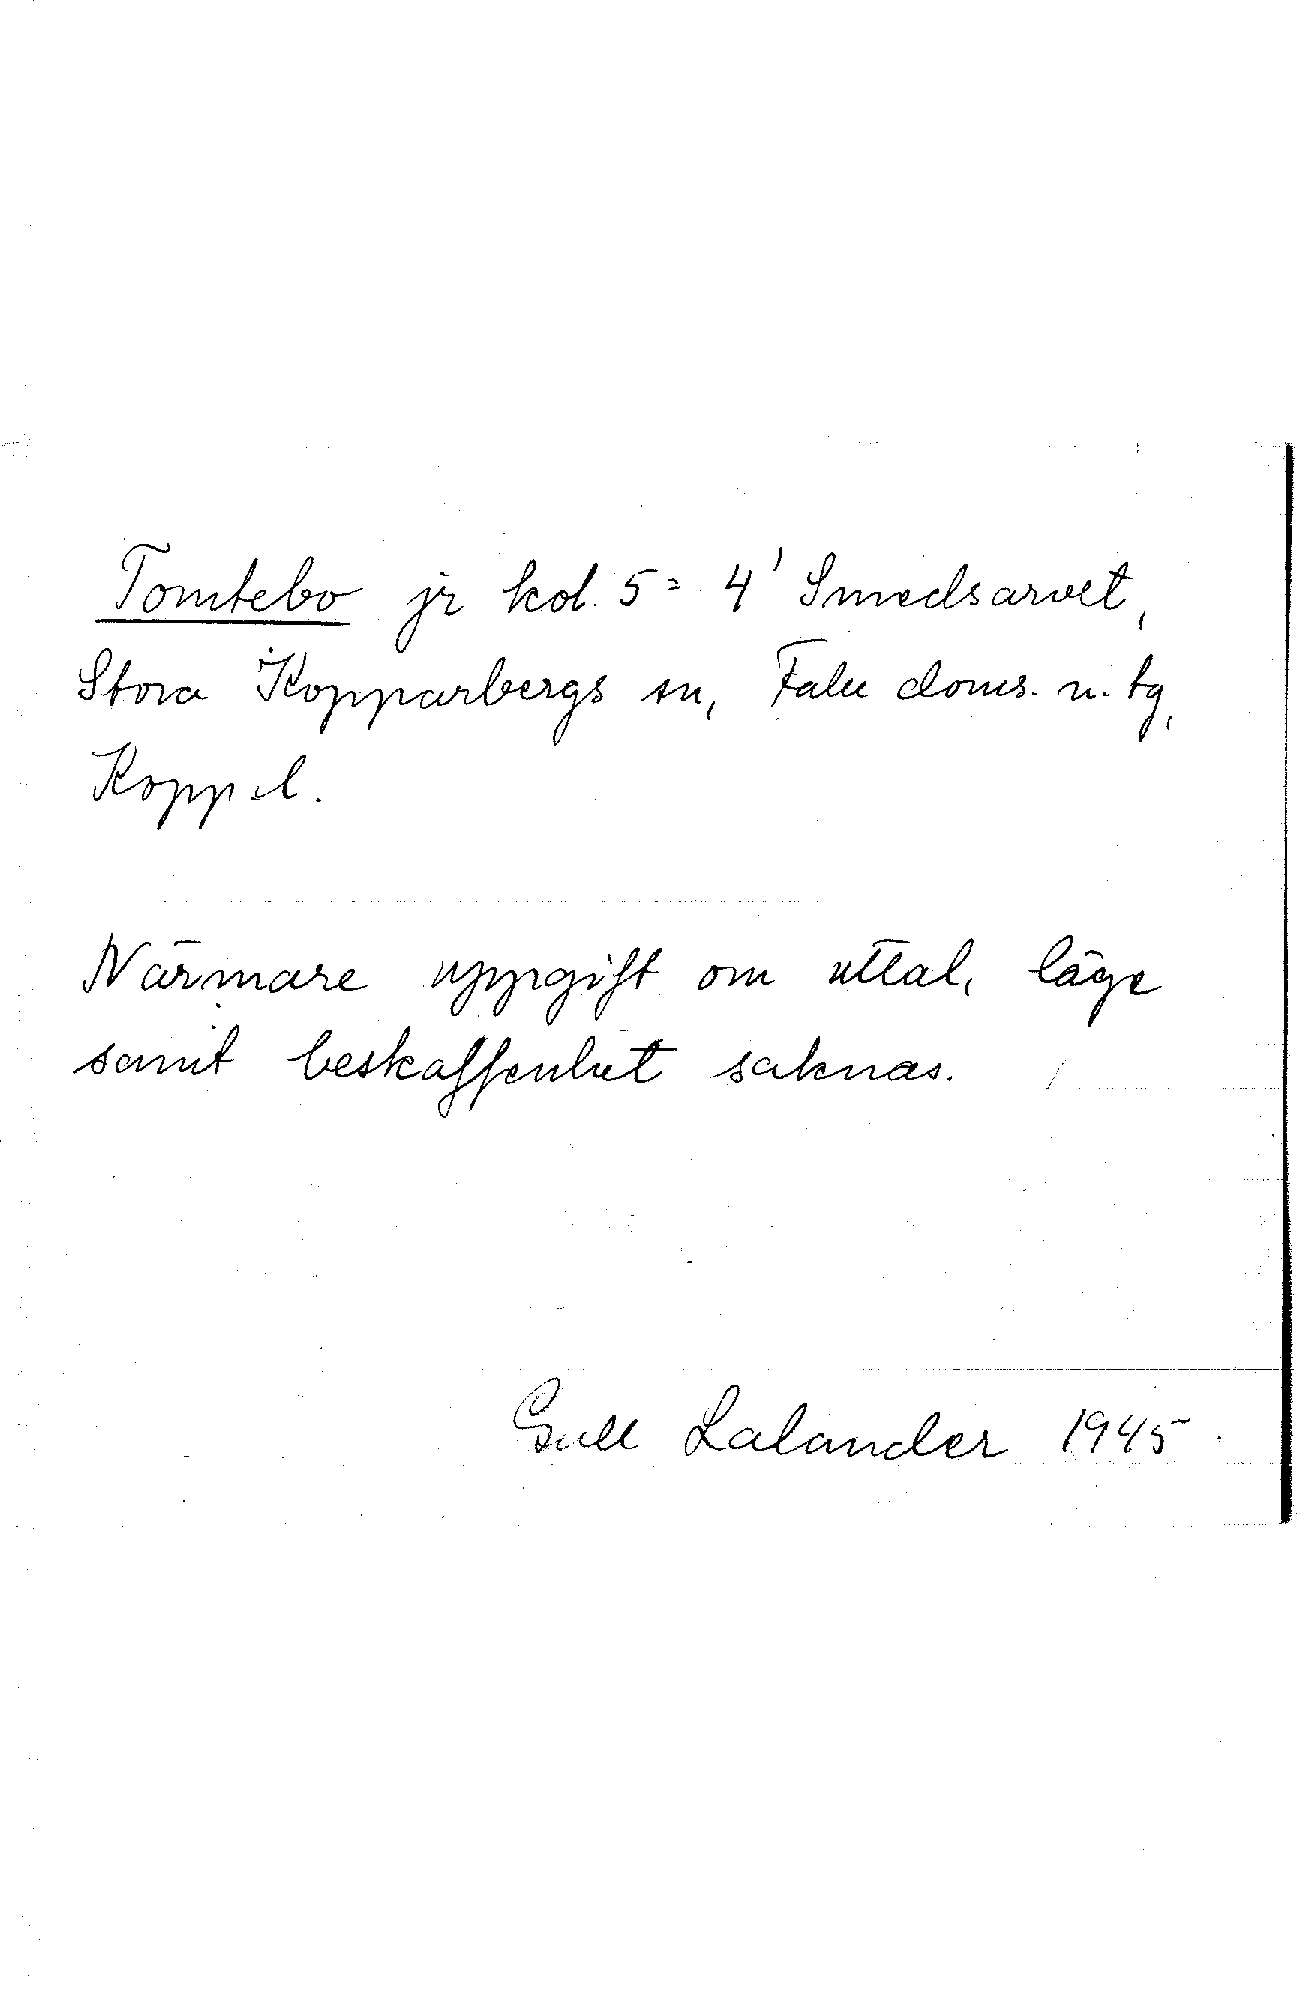 Tomtebo jr kol. 5 = 4' Smedsarvet,
Stora Kopparbergs sn, Falu doms. n. tg,
Kopp. l.
Närmare uppgift om uttal, läge
samt beskaffenhet saknas.
Gull Lalander 1945